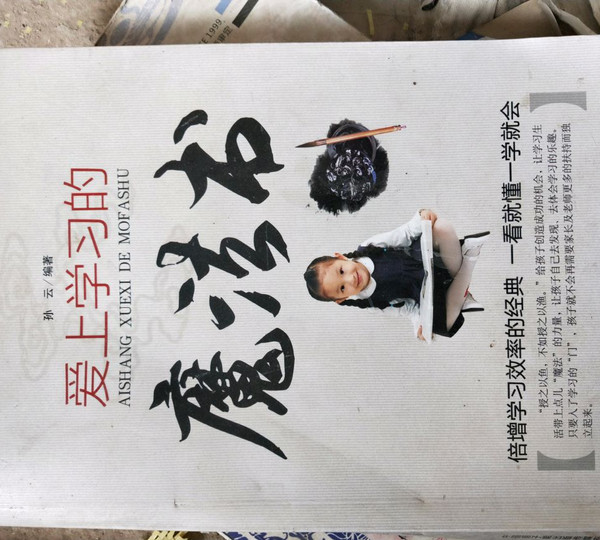 孙 云／编著
爱上学习的
AISHANG XUEXI DE MOFASHU
魔法书
倍增学习效率的经典 一看就懂一学就会
“授之以鱼，不如授之以渔。”给孩子创造成功的机会，让学习生
活带上点儿“魔法”的力量，让孩子自己去发现、去体会学习的乐趣。
只要入了学习的“门”，孩子就不会再需要家长及老师更多的扶持而独
立起来。
1999